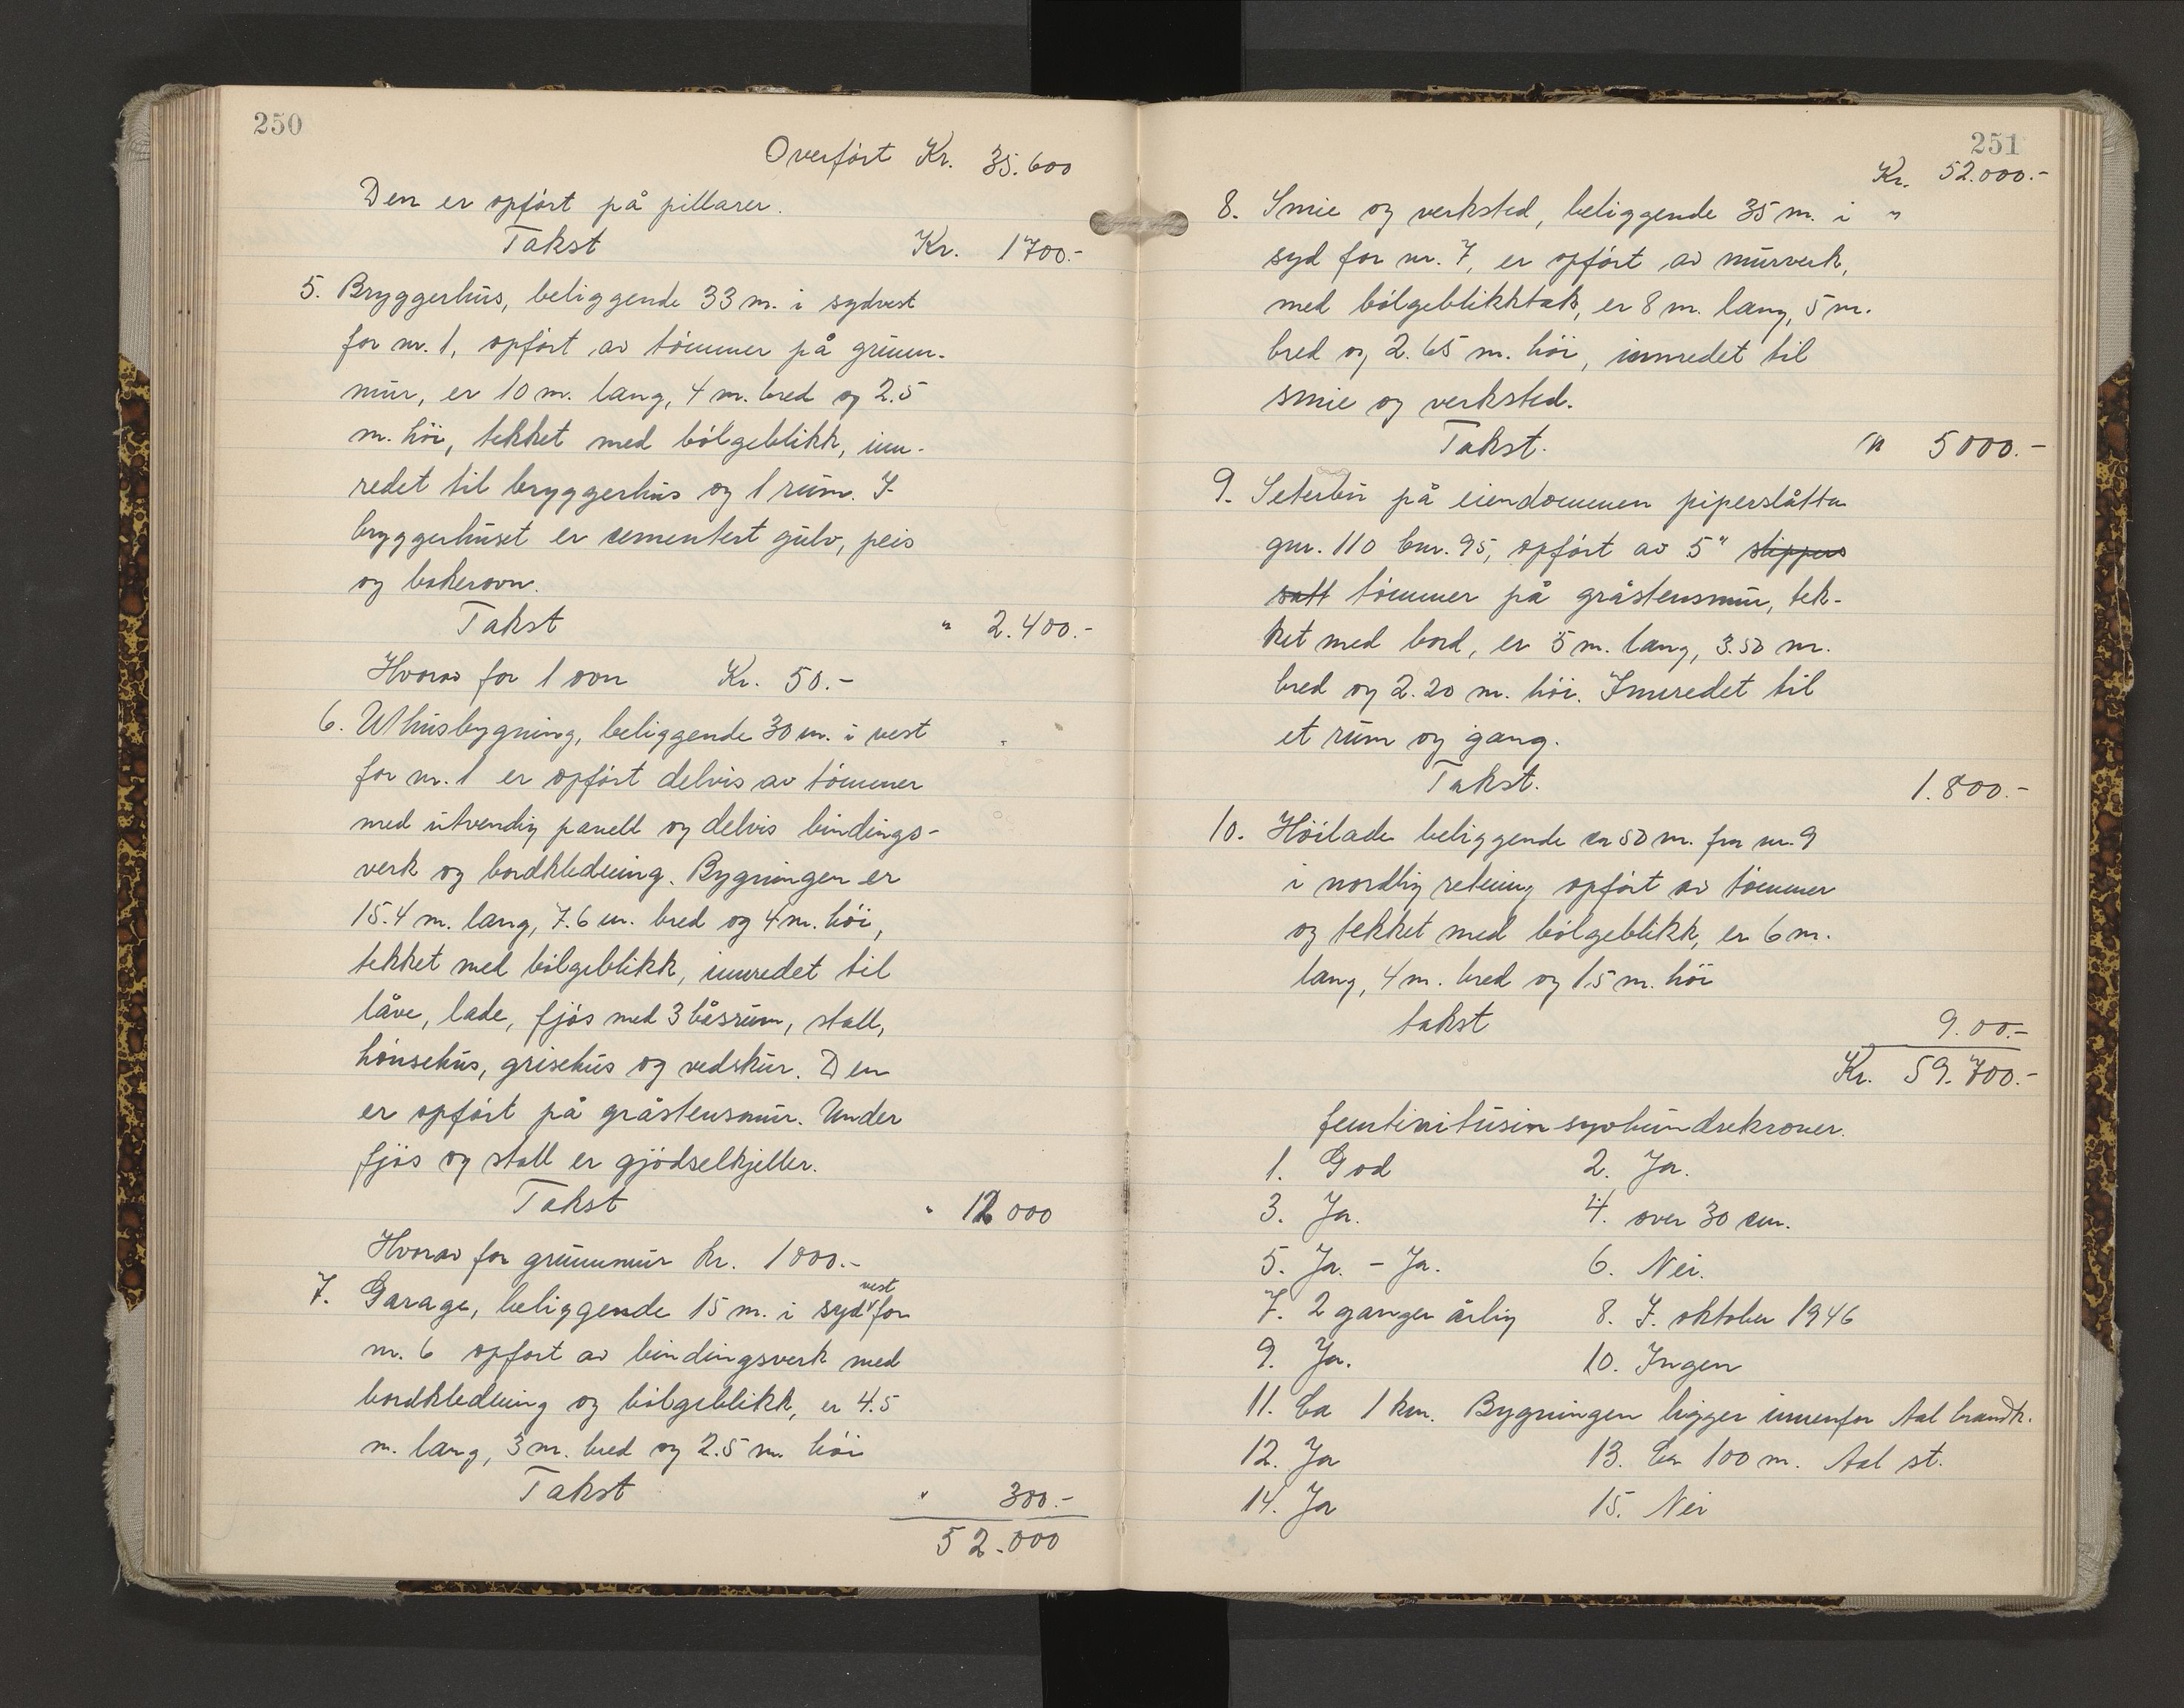 250
Overført Kr. 35.600
Den er opført på pillarer.
Takst Kr. 1700.-
5. Bryggerhus, beliggende 33 m. i sydvest
for nr. 1, opført av tømmer på grunn-
mur, er 10 m. lang, 4 m. bred og 2.5
m. høi, tekket med bølgeblikk, inn-
redet til bryggerhus og 1 rum. I
bryggerhuset er cementert gulv, peis
og bakerovn.
Takst " 2.400.-
Hvorav for 1 ovn Kr. 50.-
6. Uthusbygning, beliggende 30 m. i vest
for nr. 1 er opført delvis av tømmer
med utvendig panell og delvis bindings-
verk og bordkledning. Bygningen er
15.4 m. lang, 7.6 m. bred og 4 m. høi,
tekket med bølgeblikk, innredet til
låve, lade, fjøs med 3 båsrum, stall,
hønsehus, grisehus og vedskur. Den
er opført på gråstensmur. Under
fjøs og stall er gjødselkjeller.
Takst " 12 000
Hvorav for grunnmur kr. 1000.-
7. Garage, beliggende 15 m. i syd vest for
nr. 6 opført av bindingsverk med
bordkledning og bølgeblikk, er 4.5
m. lang, 3 m. bred og 2.5 m høi
Takst " 300.-
52.000
251
Kr. 52.000.-
8. Smie og verksted, beliggende 35 m. i "
syd for nr. 7, er opført av murverk,
med bølgeblikktak, er 8 m. lang, 5 m.
bred og 2.65 m. høi, innredet til
smie og verksted.
Takst. " 5000.-
9. Seterbu på eiendommen piperslåtta
gnr. 110 bnr. 95, opført av 5" slippers
satt tømmer på gråstensmur, tek-
ket med bord, er 5 m. lang, 3.50 m.
bred og 2.20 m. høi. Innredet til
et rum og gang.
Takst. 1.800.-
10. Höilade beliggende ca 50 m. fra nr. 9
i nordlig retning opført av tømmer
og tekket med bølgeblikk, er 6 m.
lang, 4 m. bred og 1.5 m. høi
takst 9.00.-
Kr. 59.700.-
femtinitusin syvhundrekroner.
1. God 2. Ja.
3. Ja. 4. over 30 cm.
5. Ja. - Ja. 6. Nei.
7. 2 ganger årlig 8. 7. oktober 1946
9. Ja. 10. Ingen
11. Ca 1 km. Bygningen ligger innenfor Aal brandk.
12. Ja 13. Ca 100 m. Aal st.
14. Ja 15. Nei